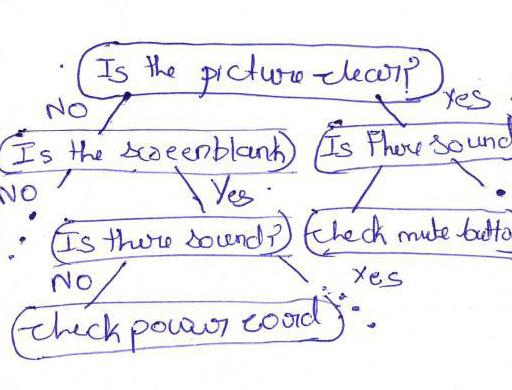 Is the picture clear?
NO
Yes
Is the screenblank
Is there sound
NO
Yes
Is there sound?
check mute butto
NO
Yes
check power cord